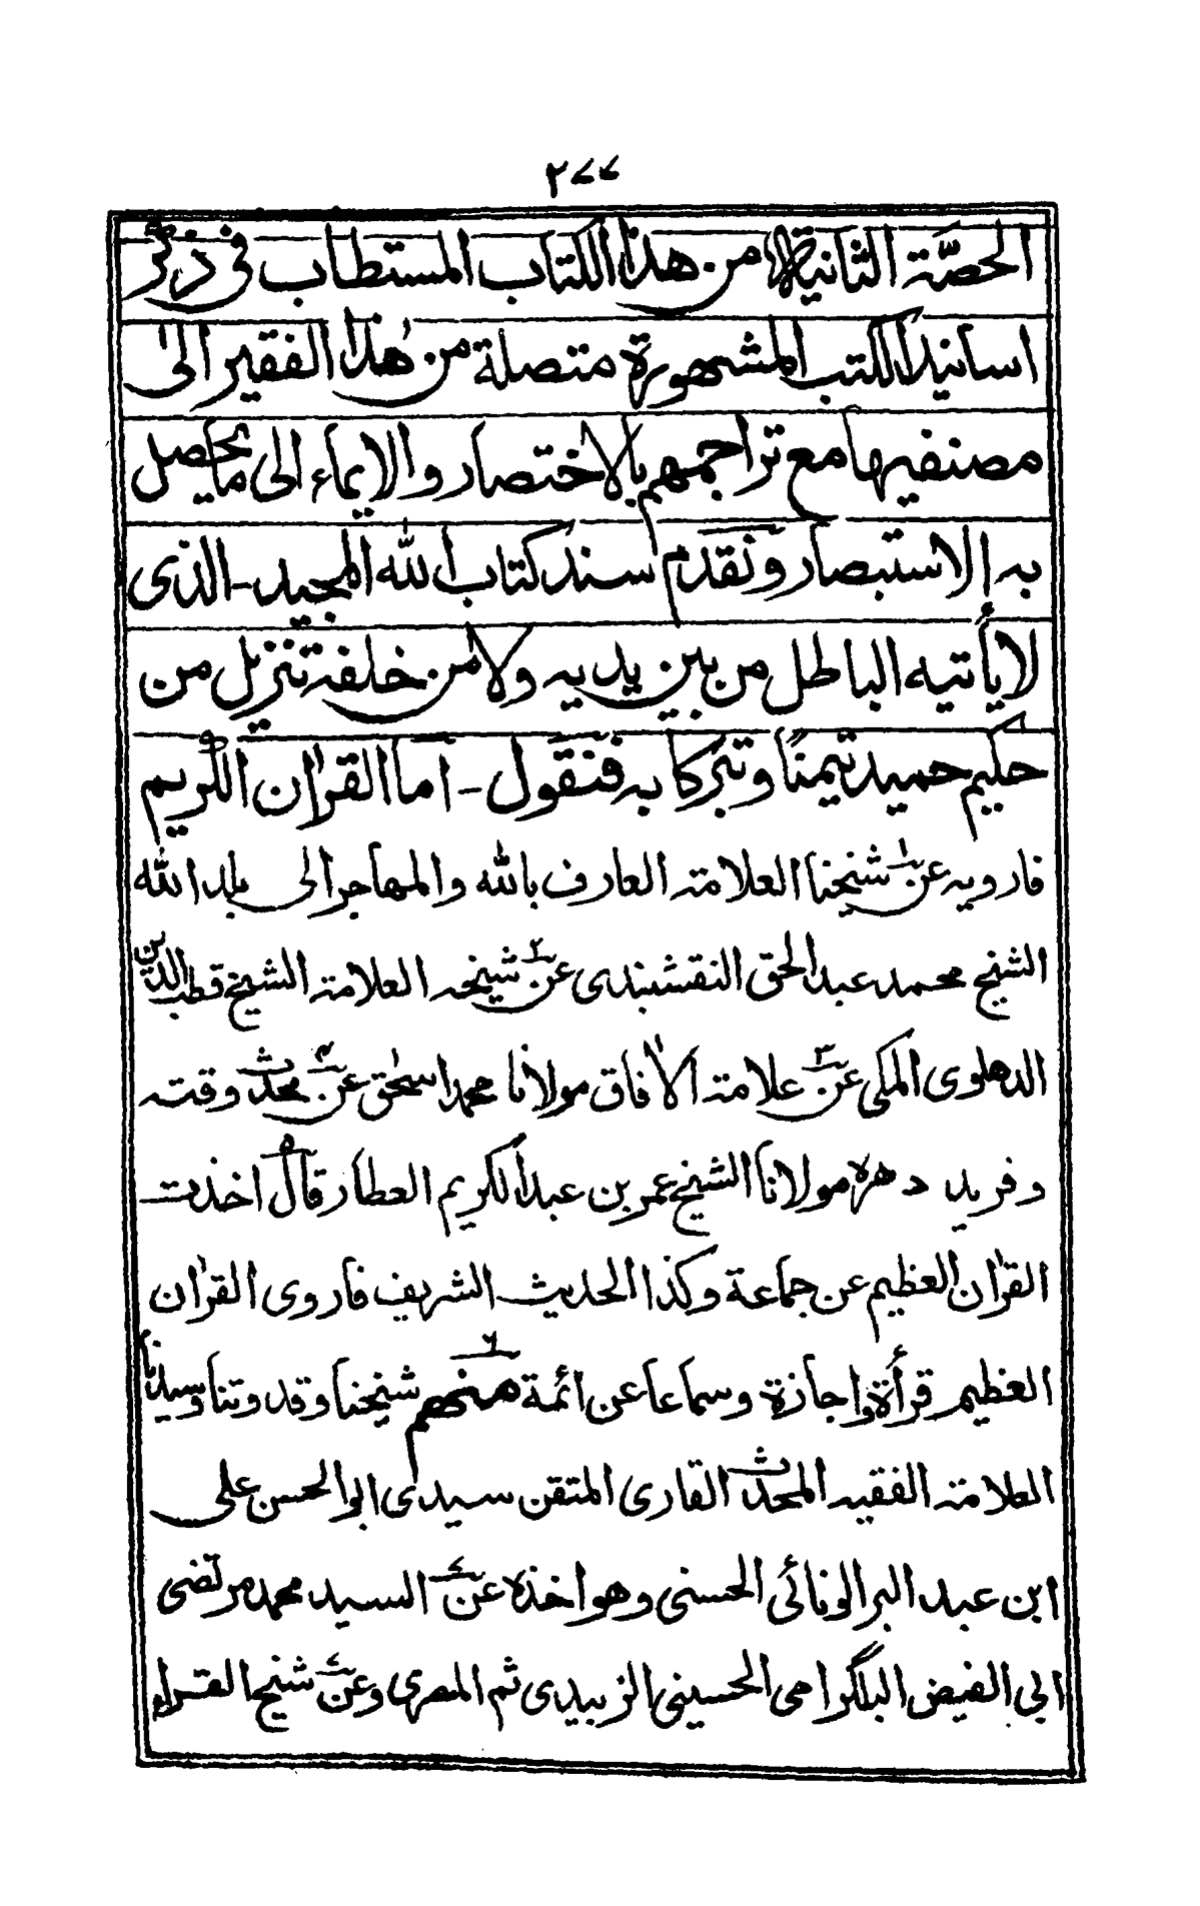 ٢٧٧
الحصّة الثانية من هذا الكتاب المستطاب فى ذكر
اسانيد الكتب المشهورة متصلة من هٰذا الفقير الىٰ
مصنفيها مع تراجمهم بالاختصار والايماء الى ما يحصل
به الاستبصار ونقدم سند كتاب الله المجيد - الذى
لا يأتيه الباطل من بين يديه ولا من خلفه تنزيل من
حكيم حميد تيمنًا وتبركا به فنقول - اما القراٰن الكريم
فارويه عن شيخنا العلامة العارف بالله والمهاجر الى بلد الله
الشيخ محمد عبد الحق النقشبندى عن شيخه العلامة الشيخ قطب الدين
الدهلوى المكى عن علامة الاٰفاق مولانا محمد اسحٰق عن محدث وقته
وفريد دهره مولانا الشيخ عمر بن عبد الكريم العطار قال اخذت
القراٰن العظيم عن جماعة وكذا الحديث الشريف فاروى القراٰن
العظيم قرأة واجازة وسماعا عن ائمة منهم شيخنا وقدوتنا وسيدنا
العلامة الفقيه المحدث القارى المتقن سيدى ابو الحسن على
ابن عبد البر الونائى الحسنى وهو اخذه عن السيد محمد مرتضى
ابى الفيض البلگرامى الحسينى الزبيدى ثم المصرى وعن شيخ القراء